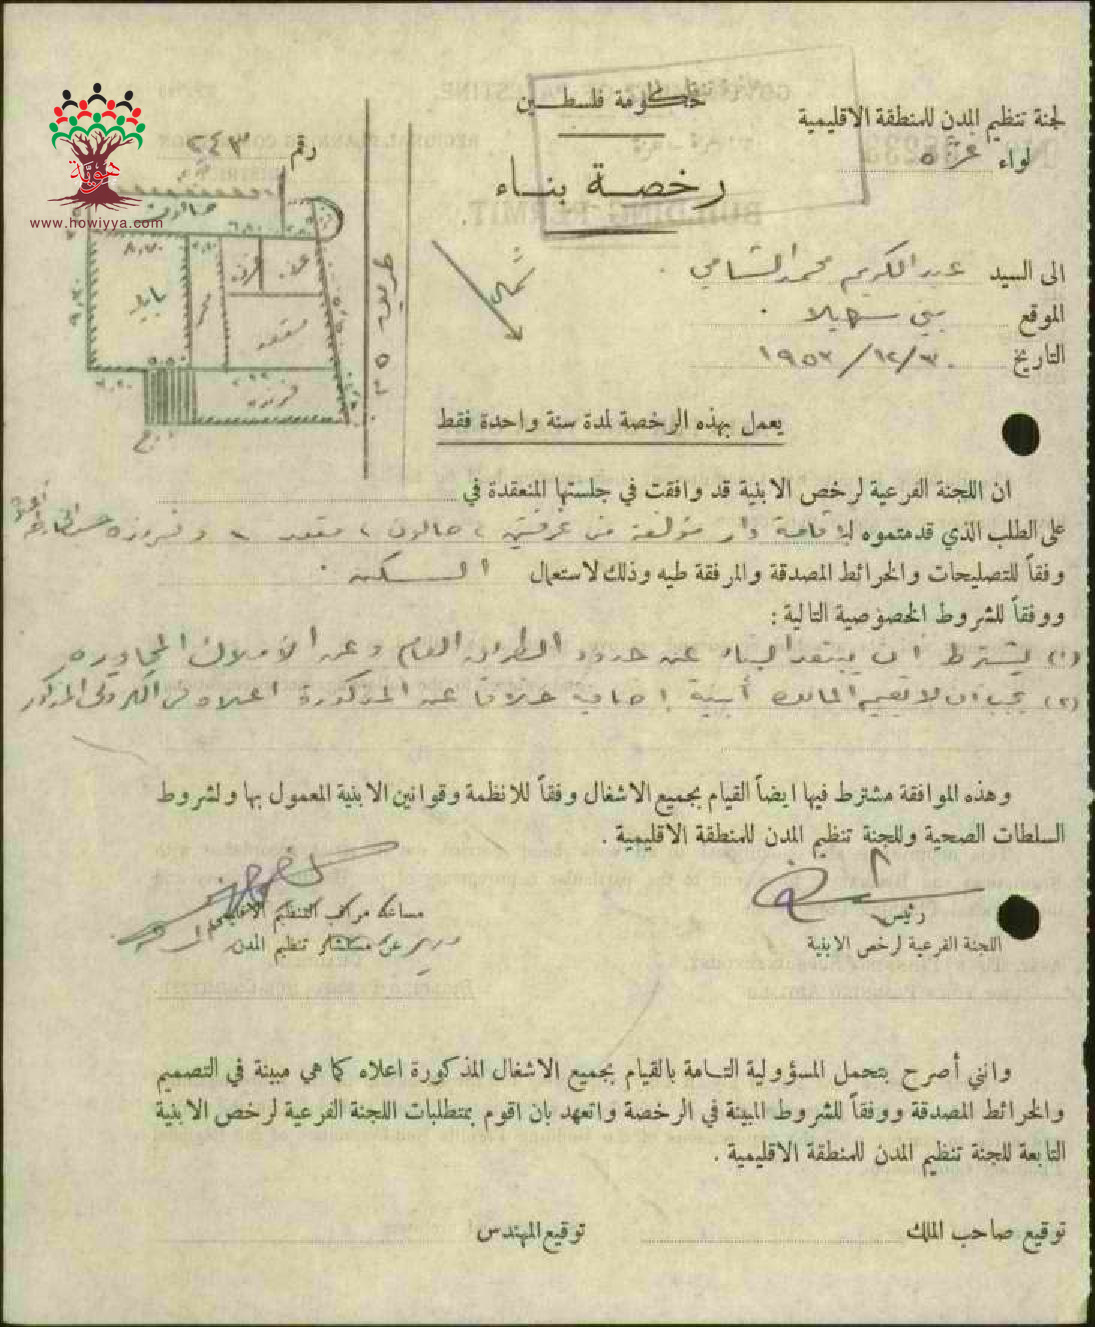 حكومة فلسطين
لجنة تنظيم المدن للمنطقة الاقليمية
لواء غزة
رقم ٢٤٣
رخصة بناء
هوية
www.howiyya.com
صالون
٨,٧٠
مقعد
فرنده
درج
شمال
الى السيد عبد الكريم محمد الشامي
الموقع بني سهيلا
التاريخ ٣٠/١٢/١٩٥٣
يعمل بهذه الرخصة لمدة سنة واحدة فقط
ان اللجنة الفرعية لرخص الابنية قد وافقت في جلستها المنعقدة في
على الطلب الذي قدمتموه لإقامة دار مؤلفة من غرفتين، صالون، مقعد، وفرنده حسب
وفقاً للتصليحات والخرائط المصدقة والمرفقة طيه وذلك لاستعمال السكن.
ووفقاً للشروط الخصوصية التالية :
(١) يشترط ان يبتعد البناء عن حدود الطريق العام وعن الاملاك المجاوره
(٢) يجب ان لا يقيم المالك أبنية إضافية خلافا عن المذكورة اعلاه
وهذه الموافقة مشترط فيها ايضاً القيام بجميع الاشغال وفقاً للانظمة وقوانين الابنية المعمول بها ولشروط
السلطات الصحية وللجنة تنظيم المدن للمنطقة الاقليمية .
رئيس
اللجنة الفرعية لرخص الابنية
مساعد مراقب التنظيم الاقليمي
عن مستشار تنظيم المدن
وانني أصرح بتحمل المسؤولية التامة بالقيام بجميع الاشغال المذكورة اعلاه كما هي مبينة في التصميم
والخرائط المصدقة ووفقاً للشروط المبينة في الرخصة واتعهد بان اقوم بمتطلبات اللجنة الفرعية لرخص الابنية
التابعة للجنة تنظيم المدن للمنطقة الاقليمية .
توقيع صاحب الملك
توقيع المهندس